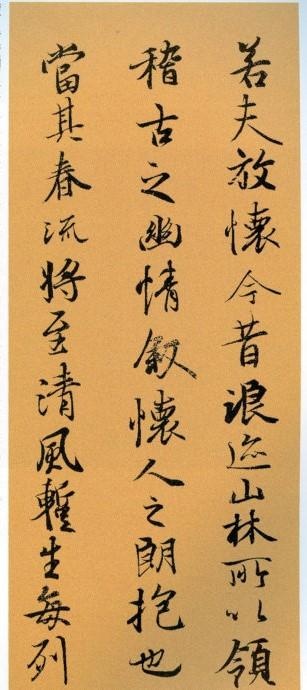 若夫放懷今昔浪迹山林所以領
稽古之幽情敘懷人之朗抱也
當其春流將至清風暫生每列